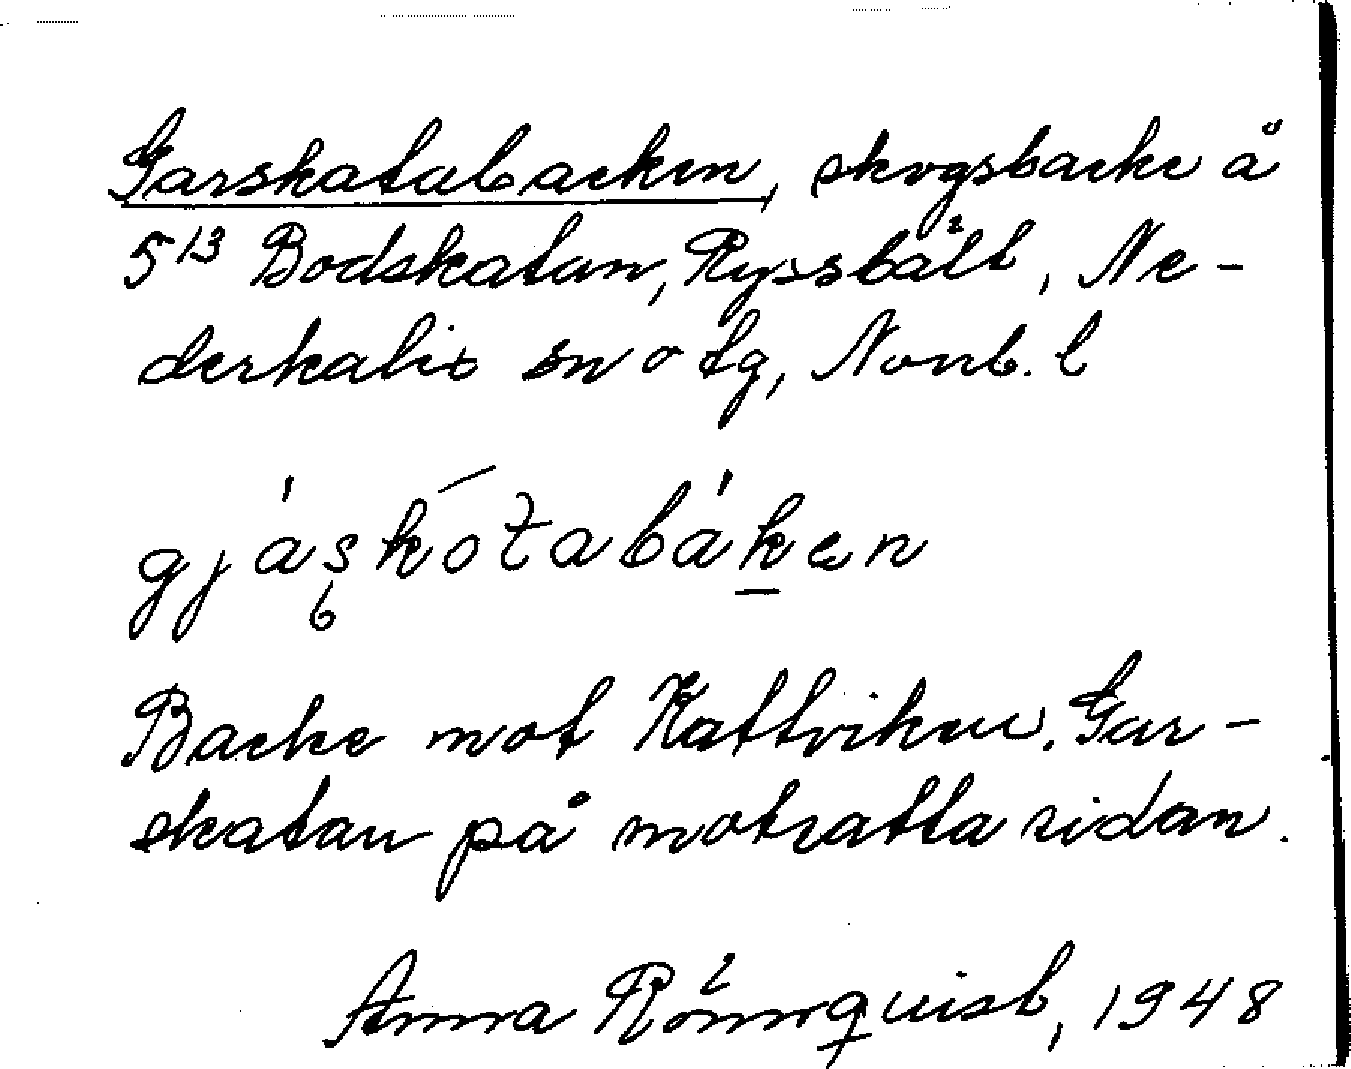 Garskatabacken, skogsbacke å
5¹³ Bodskatan, Ryssbält, Ne-
derkalix sn o tg, Norrb. l
gjáskótabáken
Backe mot Kattviken. Gar-
skatan på motsatta sidan.
Anna Rönnquist, 1948